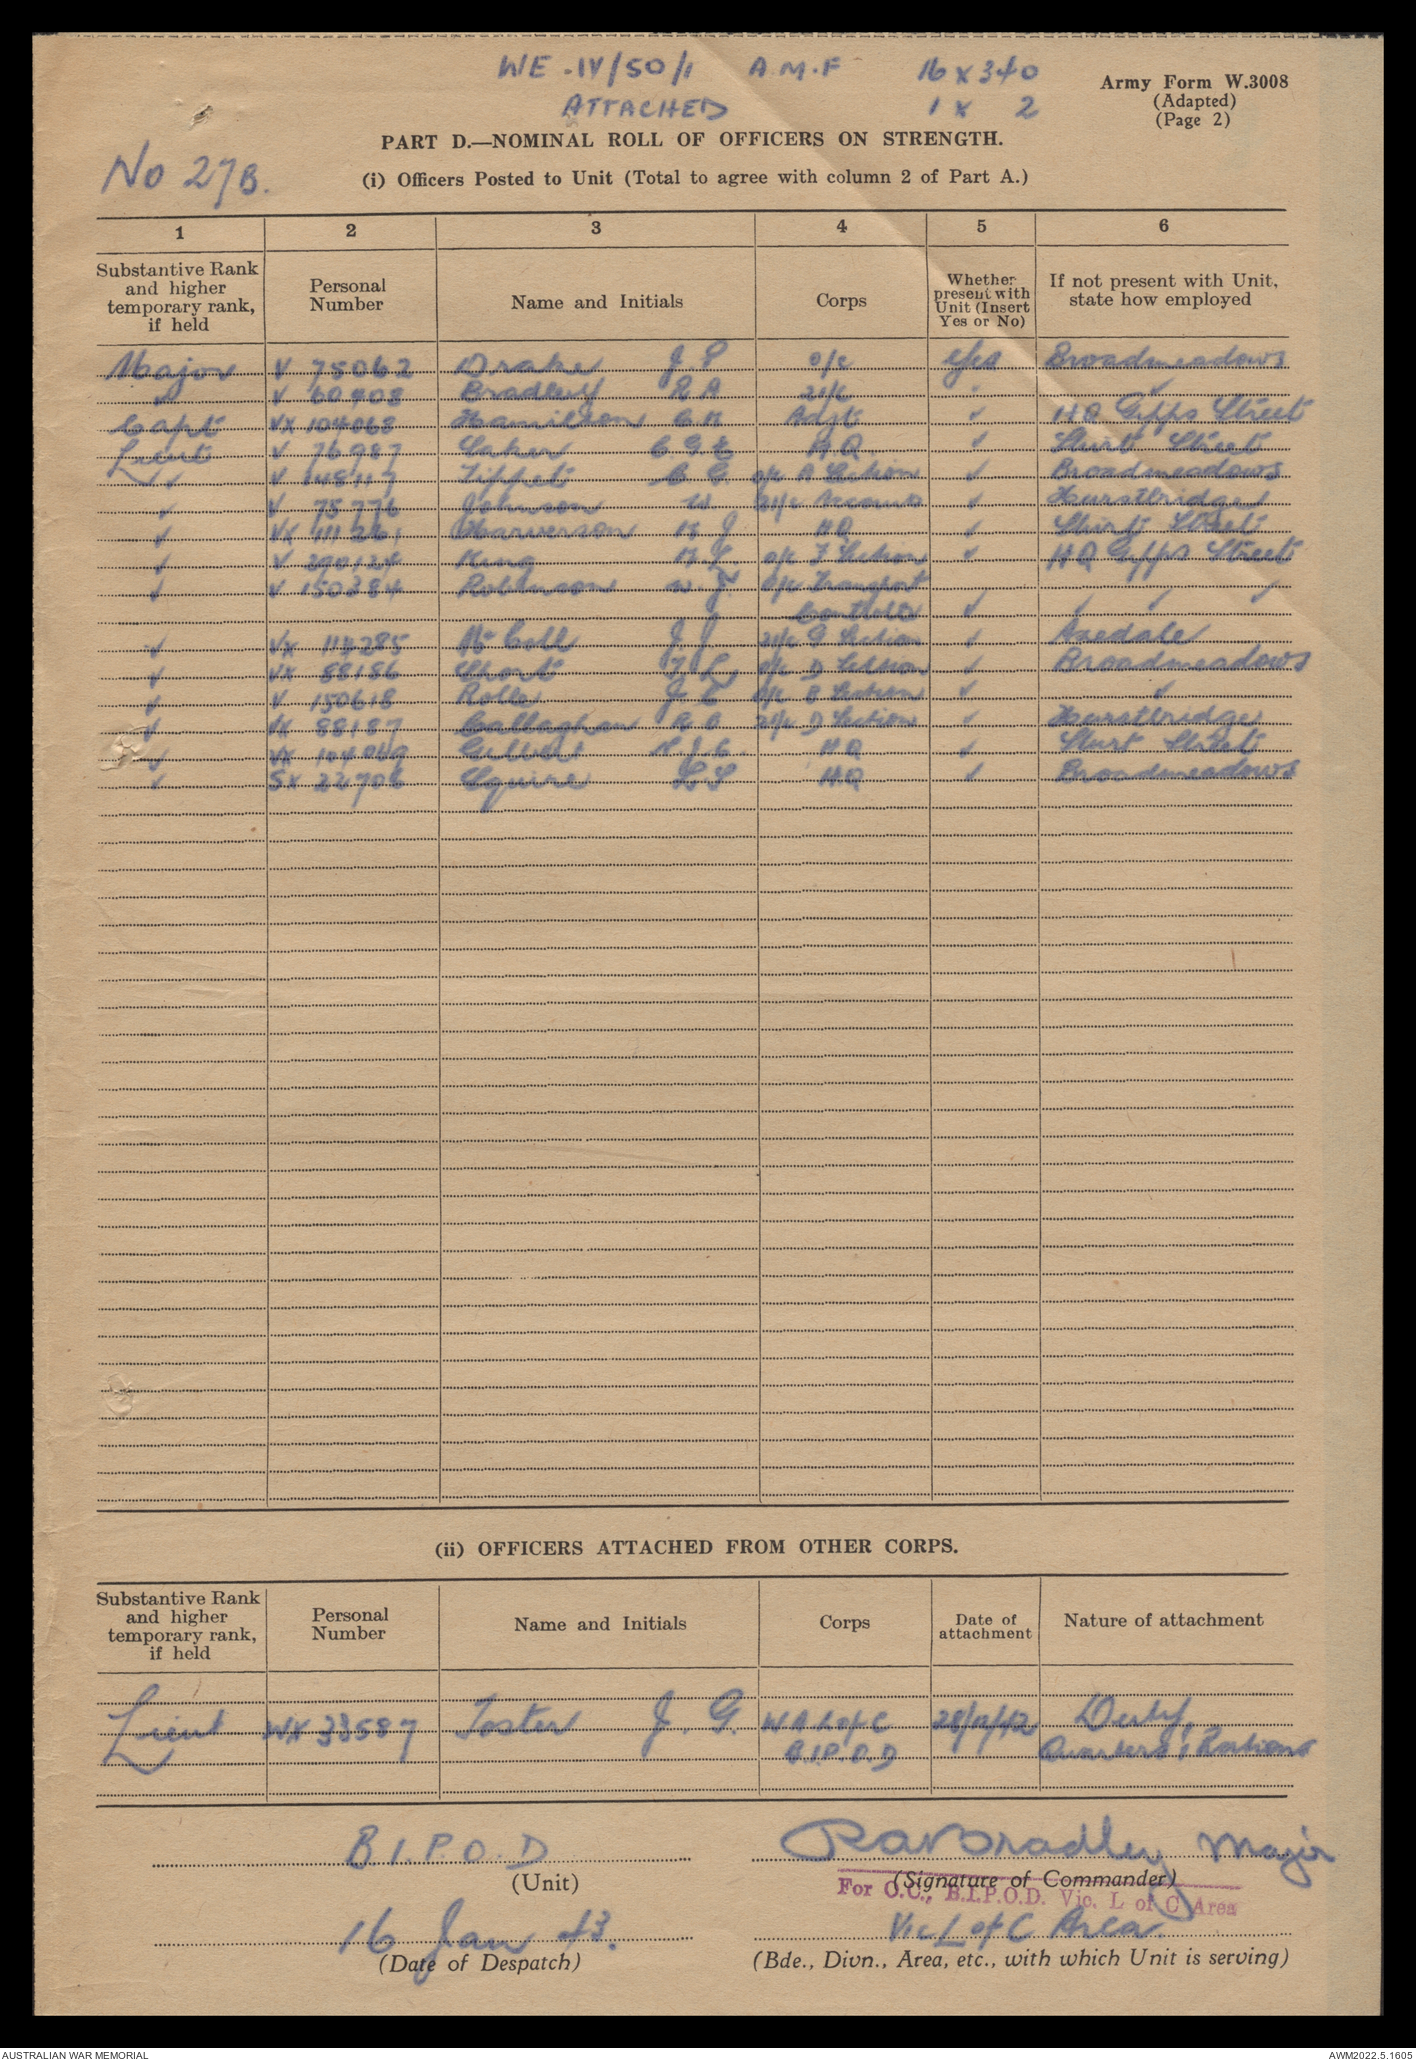 WE .IV/50/1 A.M.F 16 x 340
ATTACHED 1 x 2
Army Form W.3008
(Adapted)
(Page 2)
No 27B.
PART D.—NOMINAL ROLL OF OFFICERS ON STRENGTH.
(i) Officers Posted to Unit (Total to agree with column 2 of Part A.)
1 2 3 4 5 6
Substantive Rank and higher temporary rank, if held
Personal Number
Name and Initials
Corps
Whether present with Unit (Insert Yes or No)
If not present with Unit, state how employed
Major V 75062 Drake J.P o/c Yes Broadmeadows
" V 60908 Bradley R A 2i/c " ✓
Capt VX 104063 Hamilton C.H Adjt ✓ H.Q Gipps Street
Lieut V 76787 Laker C.G.E H.Q. ✓ Sturt Street
✓ V 148117 Tippet B. G. o/c A Section ✓ Broadmeadows
✓ V 75776 Johnson W. 2i/c ✓ Hurstbridge
✓ VX 111261 Harverson H J HQ ✓ Sturt Street
✓ V 290124 King H.L. o/c F Section ✓ H.Q Gipps Street
✓ V 150384 Robinson W.F. o/c Transport
Controller ✓ ✓ ✓ ✓
✓ VX 114285 McColl J J 2i/c G Section ✓ Axedale
✓ VX 88186 Short F L o/c D Section ✓ Broadmeadows
✓ V 150618 Rolle J E o/c B Section ✓ ✓
✓ VX 88187 Callaghan R B 2i/c D Section ✓ Hurstbridge
✓ VX 104069 Gilbert J.C. H.Q ✓ Sturt Street
✓ SX 22706 Squire L.S H.Q ✓ Broadmeadows
(ii) OFFICERS ATTACHED FROM OTHER CORPS.
Substantive Rank and higher temporary rank, if held
Personal Number
Name and Initials
Corps
Date of attachment
Nature of attachment
Lieut WX 33587 Foster J. G. W A L of C 28/11/42 Duty
B.I.P.O.D Quarters & Rations
B.I.P.O.D
(Unit)
RA Bradley Major
(Signature of Commander)
For O.C., B.I.P.O.D. Vic. L of C Area
16 Jan 43.
(Date of Despatch)
Vic L of C Area.
(Bde., Divn., Area, etc., with which Unit is serving)
AUSTRALIAN WAR MEMORIAL
AWM2022.5.1605